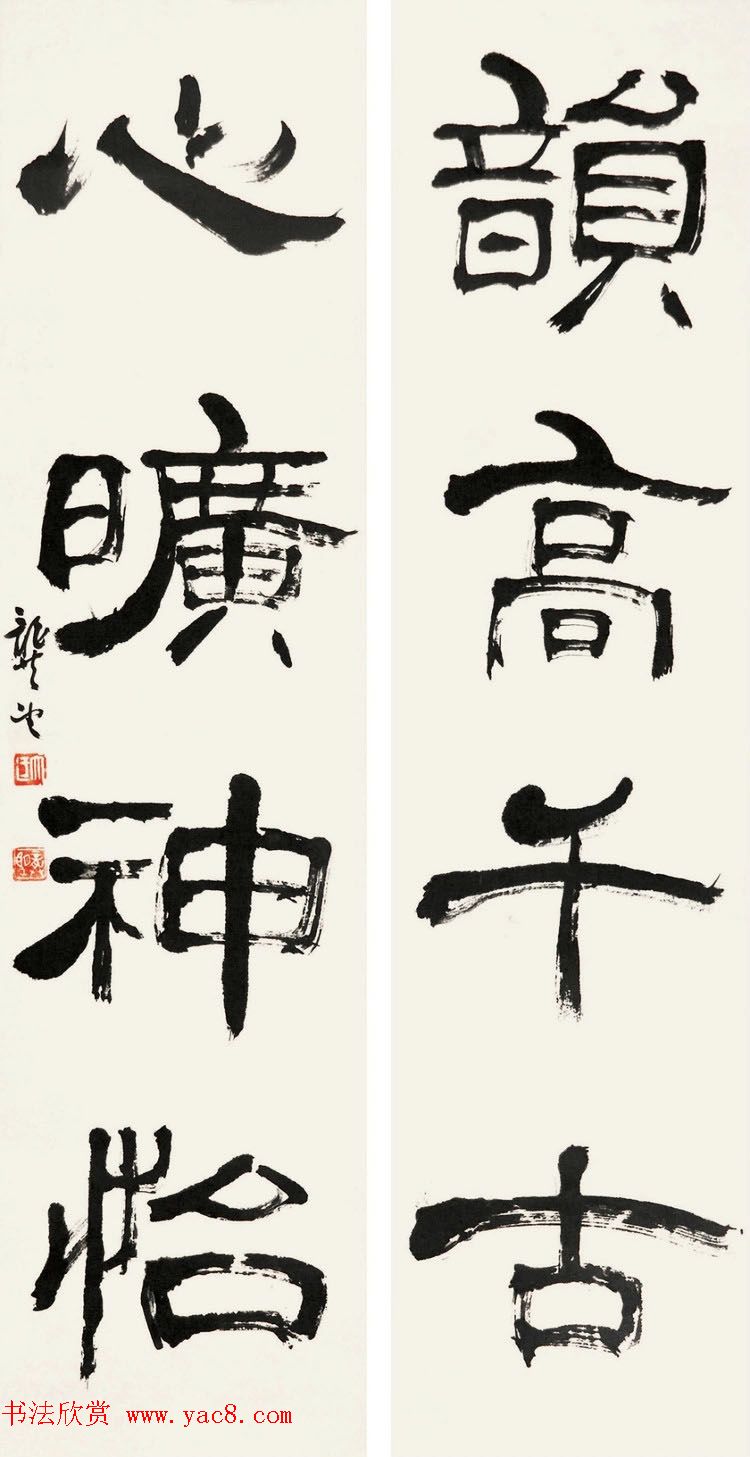 韻高千古
心曠神怡
龔望
书法欣赏 www.yac8.com